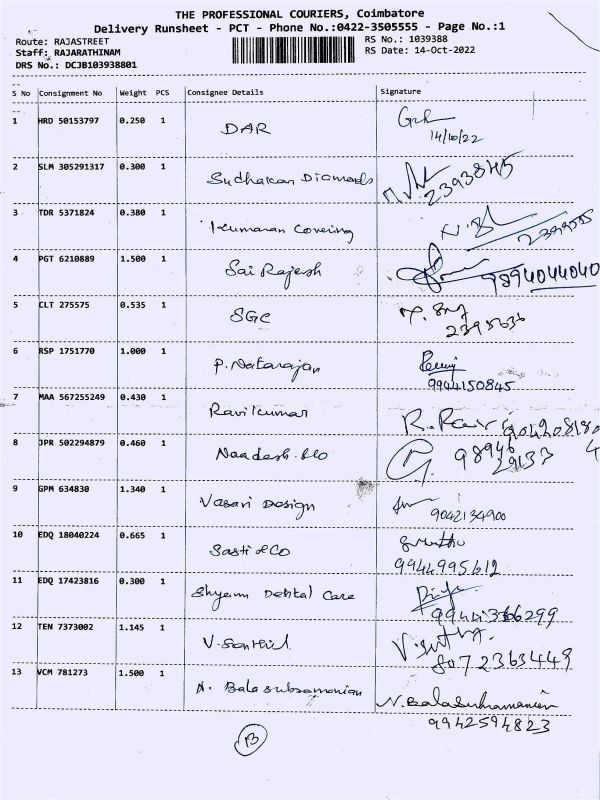 THE PROFESSIONAL COURIERS, Coimbatore
Delivery Runsheet - PCT - Phone No.:0422-3505555 - Page No.:1
Route: RAJASTREET
RS No.: 1039388
Staff: RAJARATHINAM
RS Date: 14-Oct-2022
DRS No.: DCJB103938801
S No Consignment No Weight PCS Consignee Details Signature
1 HRD 50153797 0.250 1 DAR
14/10/22
2 SLM 305291317 0.300 1 Sudhakar Diamonds 2393845
3 TDR 5371824 0.380 1 Kumaran Covering
4 PGT 6210889 1.500 1 Sai Rajesh 9894044040
5 CLT 275575 0.535 1 SGC
2395636
6 RSP 1751770 1.000 1 P. Natarajan
9944150845
7 MAA 567255249 0.430 1 Ravikumar R. Ravi
8 JPR 502294879 0.460 1 98946
29133
9 GPM 634830 1.340 1 Vasavi Design 9042134900
10 EDQ 18040224 0.665 1 Sasti & Co
9944995612
11 EDQ 17423816 0.300 1 Shyam Dental Care
12 TEN 7373002 1.145 1 V. Senthil
8072363449
13 VCM 781273 1.500 1 N. Balasubramanian N. Balasubramanian
9942594823
13